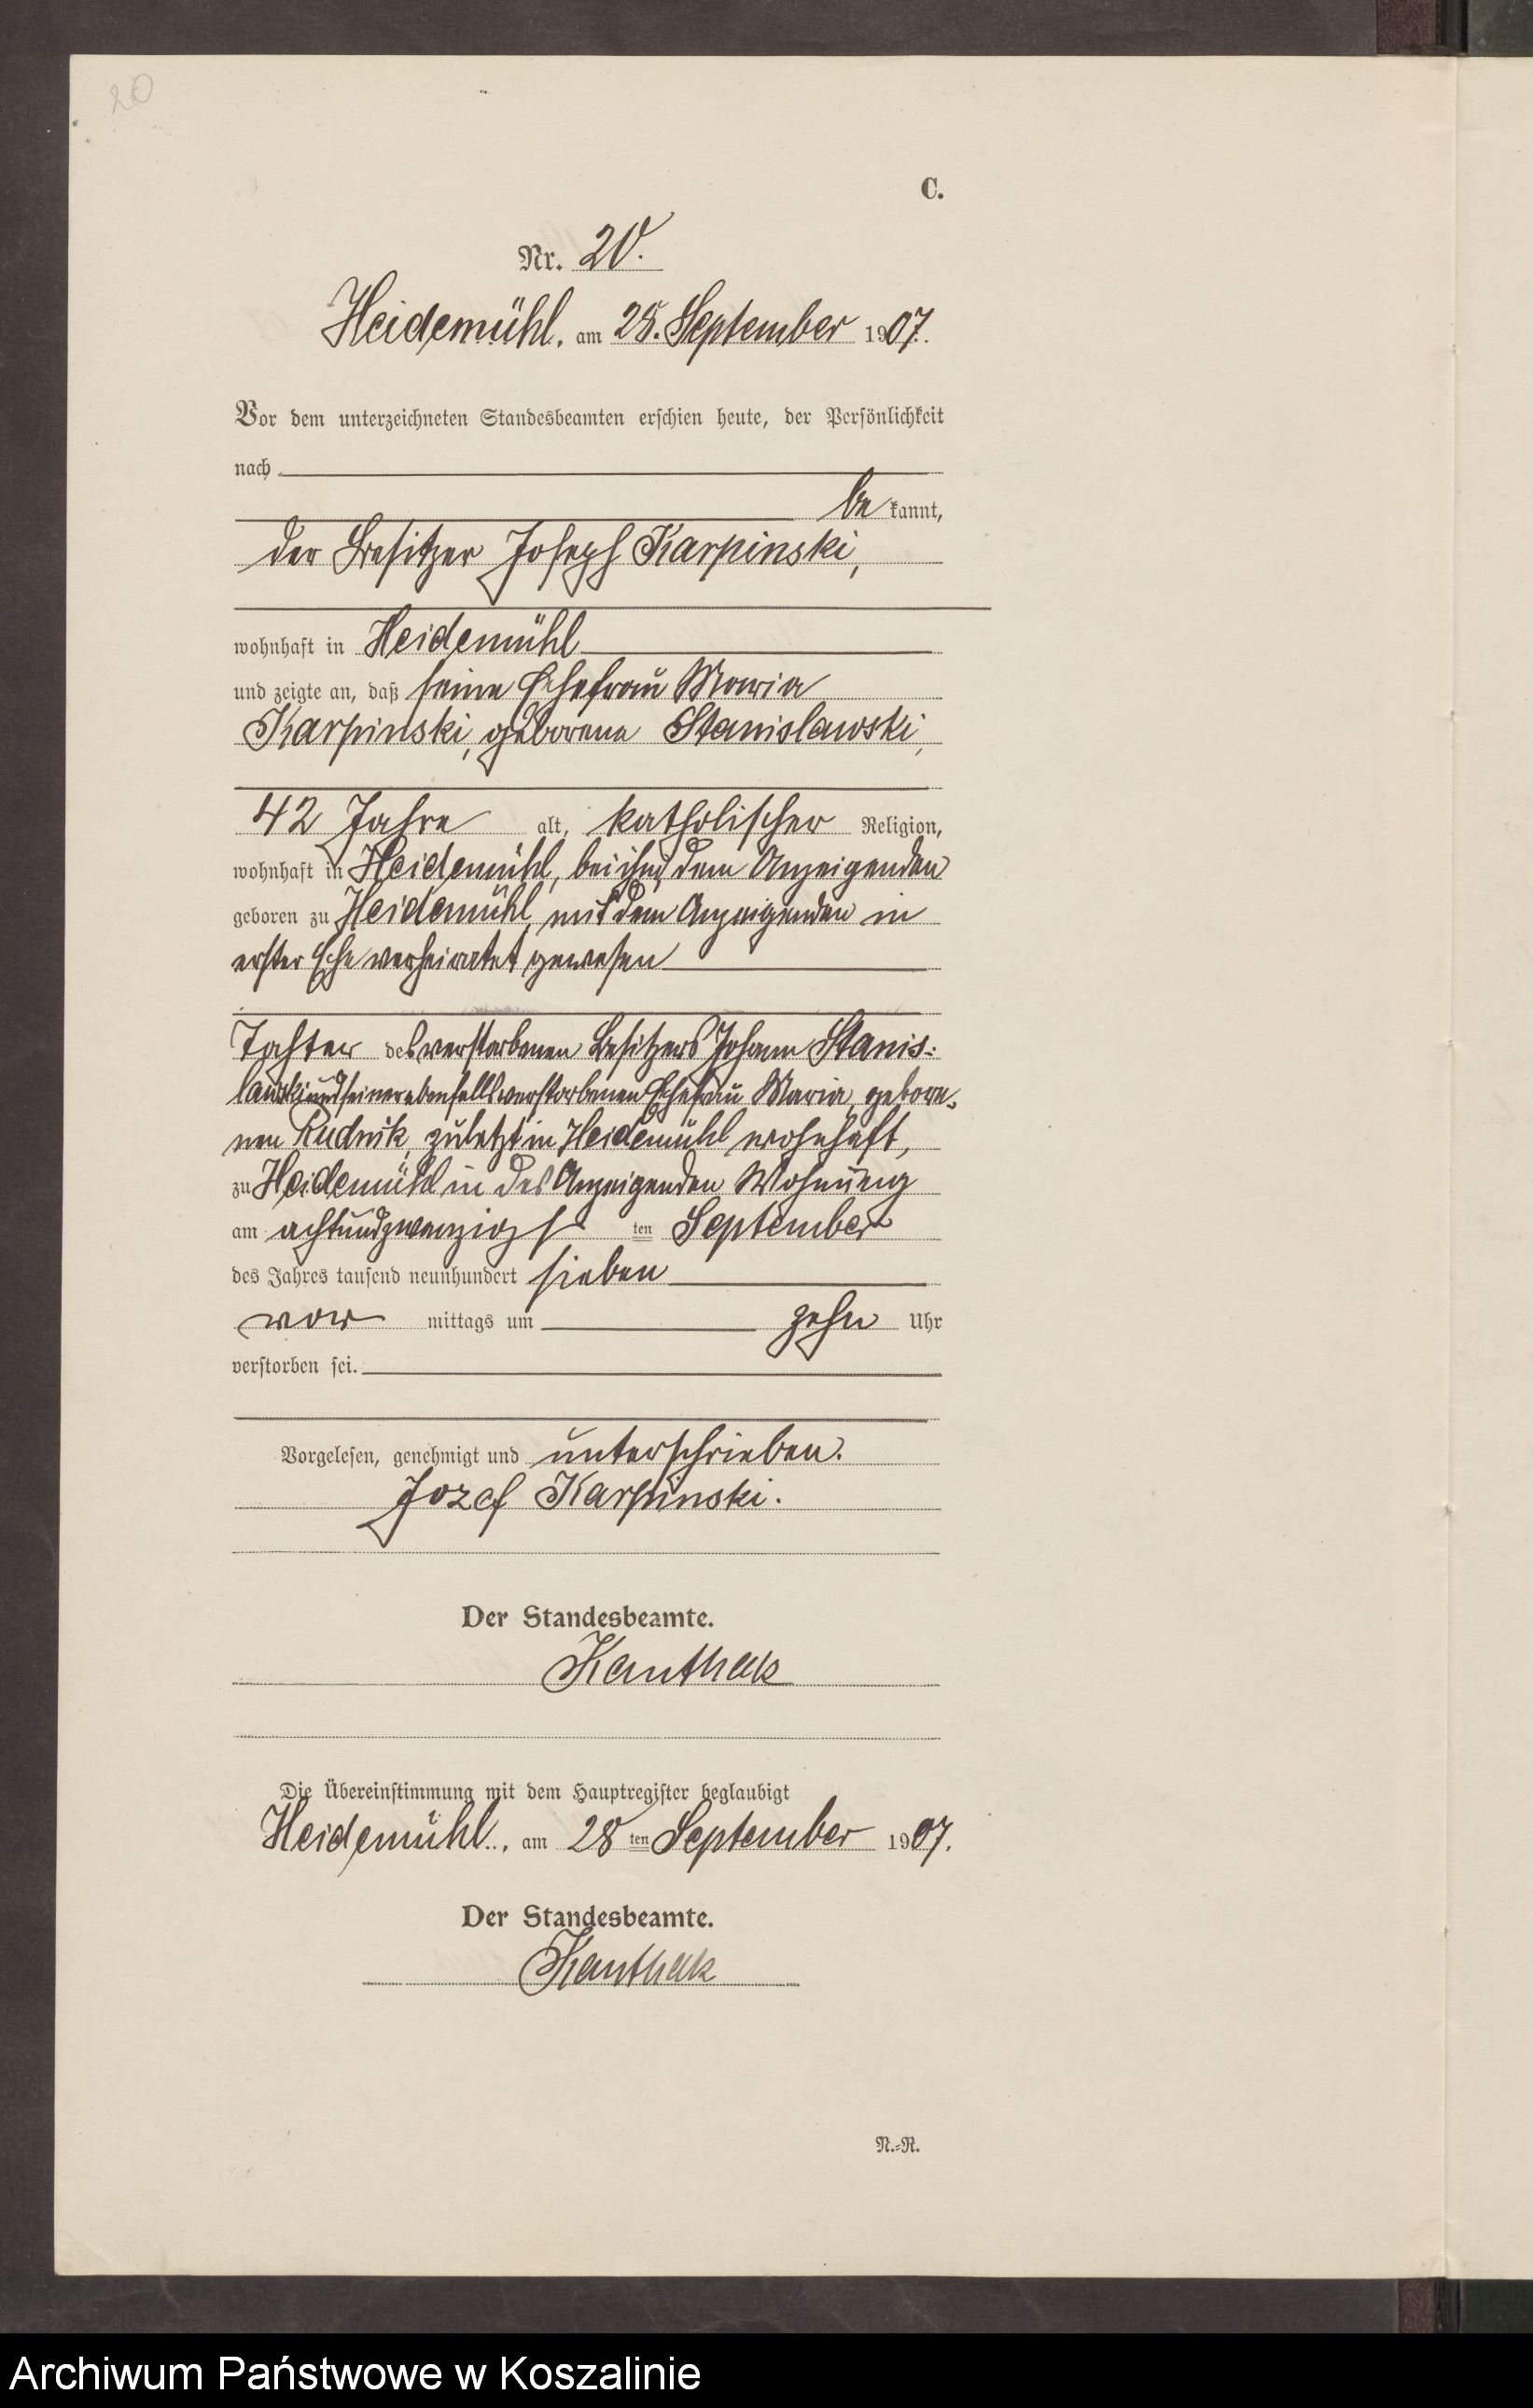 20
C.
Nr. 20.
Heidemühl, am 28. September 1907.
Vor dem unterzeichneten Standesbeamten erschien heute, der Persönlichkeit
nach
be kannt,
der Besitzer Joseph Karpinski,
wohnhaft in Heidemühl
und zeigte an, daß seine Ehefrau Maria
Karpinski, geborene Stanislawski,
42 Jahre alt, katholischer Religion,
wohnhaft in Heidemühl, bei ihm, dem Anzeigenden
geboren zu Heidemühl, mit dem Anzeigenden in
erster Ehe verheiratet gewesen
Tochter des verstorbenen Besitzers Johann Stanis-
lawski und seiner ebenfalls verstorbenen Ehefrau Maria, gebore-
nen Rudnik, zuletzt in Heidemühl wohnhaft,
zu Heidemühl in des Anzeigenden Wohnung
am achtundzwanzigs ten September
des Jahres tausend neunhundert sieben
vor mittags um zehn Uhr
verstorben sei.
Vorgelesen, genehmigt und unterschrieben.
Jozef Karpinski.
Der Standesbeamte.
Kanthak
Die Übereinstimmung mit dem Hauptregister beglaubigt
Heidemühl, am 28 ten September 1907.
Der Standesbeamte.
Kanthak
N.-R.
Archiwum Państwowe w Koszalinie